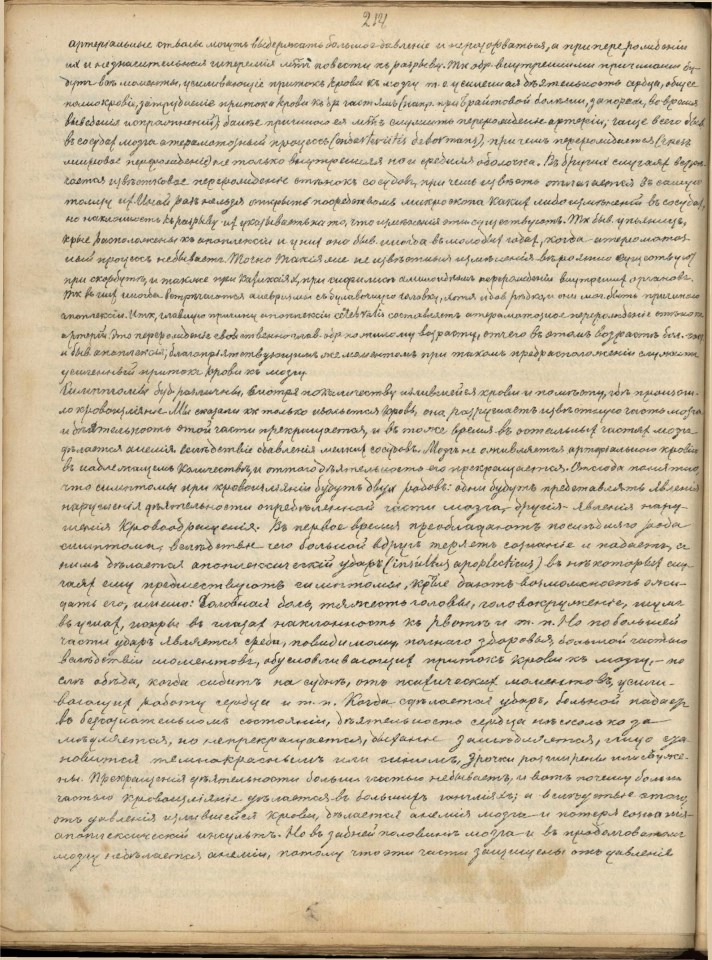 214
артерiальные стволы могутъ выдержать большое давленiе и неразорваться, а при перерожденiи
их и незначительная гиперемiя можетъ повести къ разрыву. Тк обр. внутренними причинами бу-
дутъ всѣ моменты, усиливающiе притокъ крови къ мозгу т. е. усиленная дѣятельность сердца, общее
полнокровiе, затрудненiе притока крови къ др частямъ (напр. при брайтовой болѣзни, запорахъ, во время
выведенiя испражненiй); далѣе причиною ея мѣ служитъ перерожденiе артерiи; чаще всего быв
въ сосудахъ мозга атероматозный процессъ (endarteriitis deformans), при чемъ перерождается
перерожденiе) не только внутренняя но и средняя оболочка. Въ другихъ случаяхъ
чается известковое перерожденiе стѣнокъ сосудовъ, при чемъ известь отлагается въ самую
толщу их. Иной разъ нельзя открыть посредствомъ микроскопа какихъ либо измѣненiй въ сосудахъ,
но наклонность къ разрыву их указываетъ на то, что измѣненiя эти существуютъ. Тк быв. у пьяницъ,
крые расположены къ апоплексiи и у них оно быв. иногда въ молодыхъ годахъ, когда атероматоз-
ный процессъ небываетъ. Точно такiя же не известныя измѣненiя вѣроятно существуютъ
при скорбутѣ, а также при кахексiях, при сифилисѣ амилоидномъ перерожденiи внутреннихъ органовъ.
Тк въ них иногда встрѣчаются аневризмы съ булавочную головку, хотя и довольно рѣдко, и они могутъ быть причиною
апоплексiи. Итк, главную причину апоплексiи cerebralis составляетъ атероматозное перерожденiе стѣнокъ
артерiй. Это перерожденiе свойственно глав. обр пожилому возрасту, отчего въ этомъ возрастѣ бол. частью
и быв. апоплексiя; благопрiятствующимъ же моментомъ при такомъ предрасположенiи служитъ
усиленный притокъ крови къ мозгу.
Симптомы буд. различны, смотря по количеству излившейся крови и по мѣсту, гдѣ произош-
ло кровоизлiянiе. Мы сказали кк только изольется кровь, она разрушаетъ извѣстную часть мозга
и дѣятельность этой части прекращается, и въ тоже время въ остальныхъ частяхъ мозга
дѣлается анемiя вслѣдствiе сдавленiя мелкихъ сосудовъ. Мозгъ не оживляется артерiальною кровью
въ надлежащемъ количествѣ и оттого дѣятельность его прекращается. Отсюда понятно,
что симптомы при кровоизлiянiи будутъ двухъ родовъ: одни будутъ представлять явленiя
нарушенiя дѣятельности опредѣленной части мозга, другiя явленiя нару-
шенiя кровообращенiя. Въ первое время преобладаютъ послѣдняго рода
симптомы, вслѣдствiе чего больной вдругъ теряетъ сознанiе и падаетъ, съ
нимъ дѣлается апоплексическiй ударъ (insultus apoplecticus) въ нѣкоторыхъ слу-
чаяхъ ему предшествуютъ симптомы, крые даютъ возможность ожи-
дать его, именно: Головная боль, тяжесть головы, головокруженiе, шумъ
въ ушахъ, искры въ глазахъ наклонность къ рвотѣ и т. п. Но по большей
части ударъ является среди, повидимому, полнаго здоровья, большою частью
вслѣдствiи моментовъ, обусловливающихъ притокъ крови къ мозгу, — по-
слѣ обѣда, когда сидитъ на суднѣ, отъ психическихъ моментовъ, усили-
вающихъ работу сердца и т. п. Когда сдѣлается ударъ, больной падаетъ
въ безсознательномъ состоянiи, дѣятельность сердца нѣсколько за-
медляется, но непрекращается, дыханье замедляется, лицо ста-
новится темнокраснымъ или синимъ, зрачки расширены или съуже-
ны. Прекращенiя дѣятельности больш. частью небываетъ, и вотъ почему больш.
частью кровоизлiянiе дѣлается въ большихъ ганглiяхъ; и вслѣдствiе этого,
отъ давленiя излившейся крови, дѣлается анемiя мозга и потеря сознанiя —
апоплексическiй инсультъ. Но въ задней половинѣ мозга и въ продолговатомъ
мозгу недѣлается анемiи, потому что эти части защищены отъ давленiя